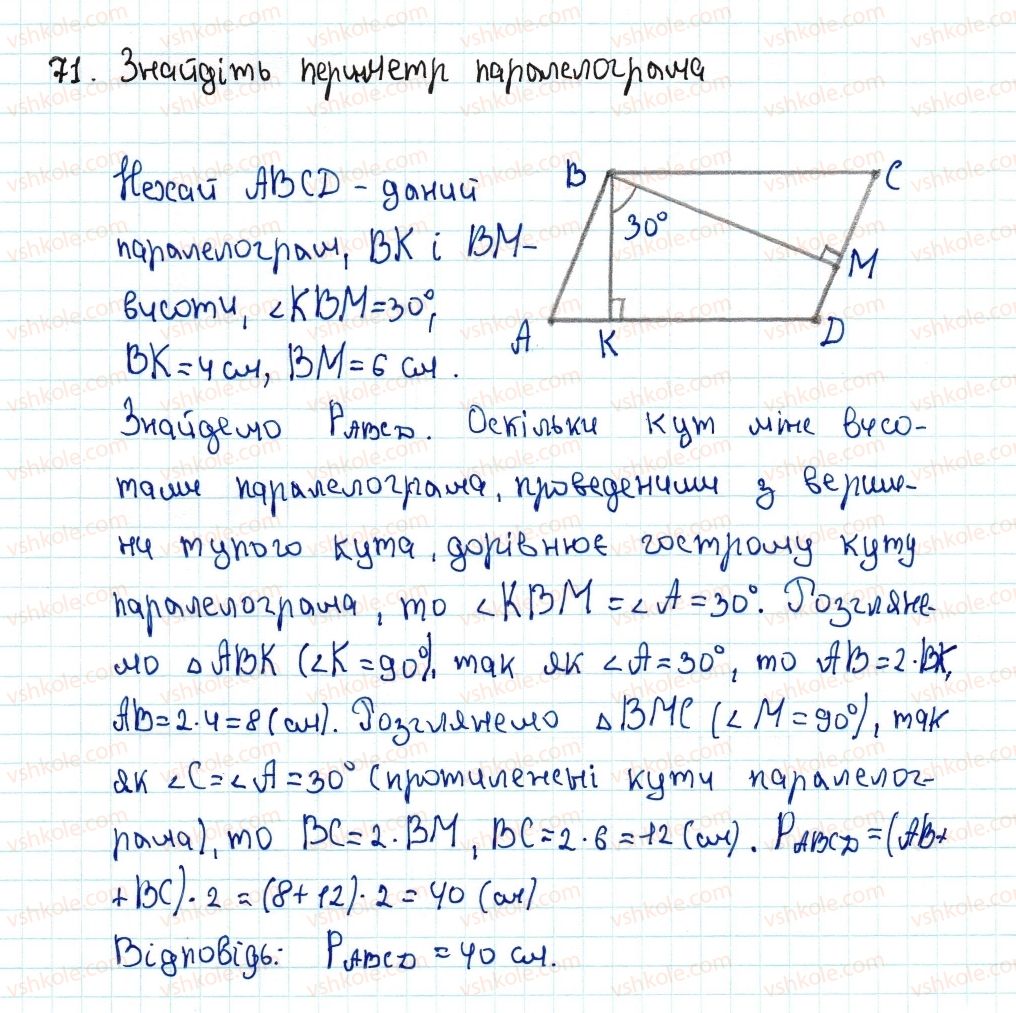 71. Знайдіть периметр паралелограма
Нехай ABCD – даний
паралелограм, BK і BM –
висоти, ∠KBM = 30°,
BK = 4 см, BM = 6 см.
B
C
30°
M
A
K
D
Знайдемо P ABCD. Оскільки кут між висо-
тами паралелограма, проведеними з верши-
ни тупого кута, дорівнює гострому куту
паралелограма, то ∠KBM = ∠A = 30°. Розгляне-
мо △ABK (∠K = 90°), так як ∠A = 30°, то AB = 2·BK,
AB = 2·4 = 8 (см). Розглянемо △BMC (∠M = 90°), так
як ∠C = ∠A = 30° (протилежні кути паралелог-
рама), то BC = 2·BM, BC = 2·6 = 12 (см). P ABCD = (AB+
+BC)·2 = (8+12)·2 = 40 (см)
Відповідь: P ABCD = 40 см.
vshkole.com